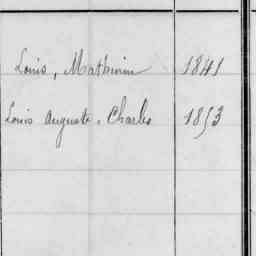 Louis, Mathurin 1841
Louis Auguste, Charles 1853